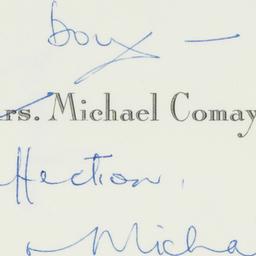 rs. Michael Comay
ffection,
Micha